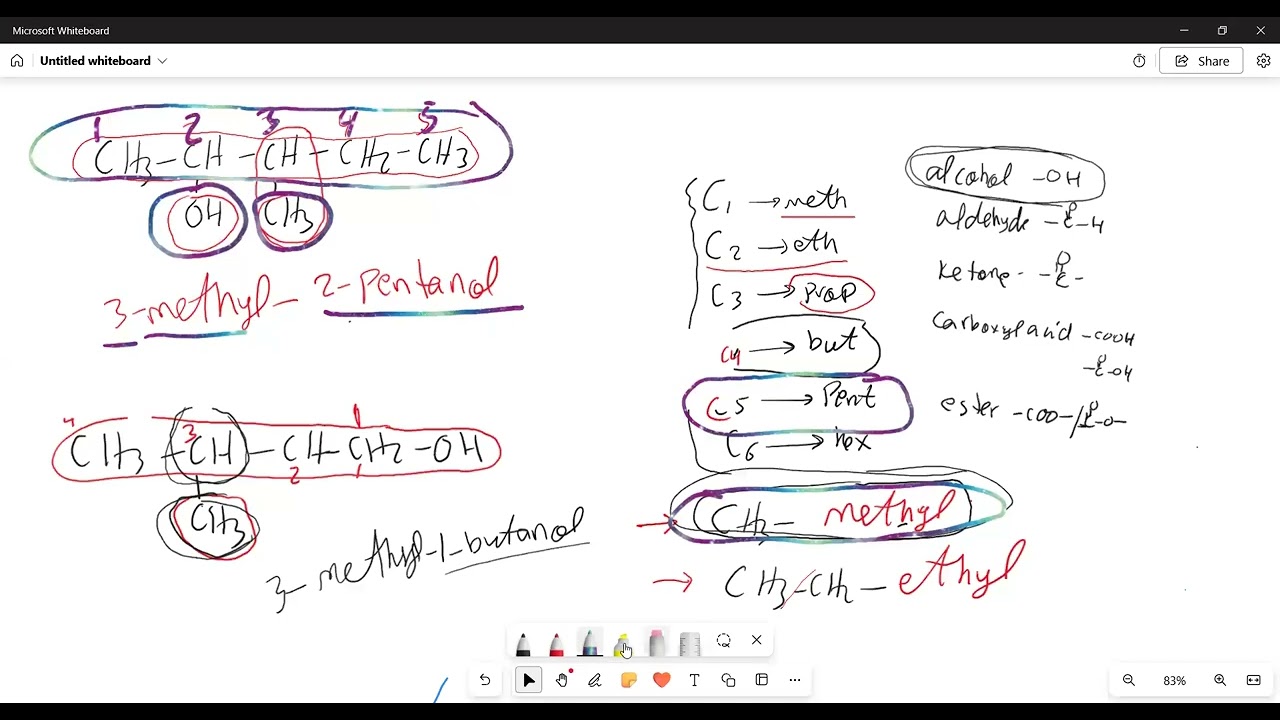 Microsoft Whiteboard
Untitled whiteboard
Share
1 2 3 4 5
CH3 - CH - CH - CH2 - CH3
OH CH3
3-methyl- 2-pentanol
4 3 1
CH3 - CH - CH - CH2 - OH
2 1
CH3
3-methyl-1-butanol
C1 → meth
C2 → eth
C3 → prop
C4 → but
C5 → Pent
C6 → hex
CH3- methyl
CH3-CH2- ethyl
alcohol -OH
aldehyde -C-H
O
Ketone - -C-
O
Carboxyl acid -COOH
O
-C-OH
ester -COO-/-C-O-
O
83%